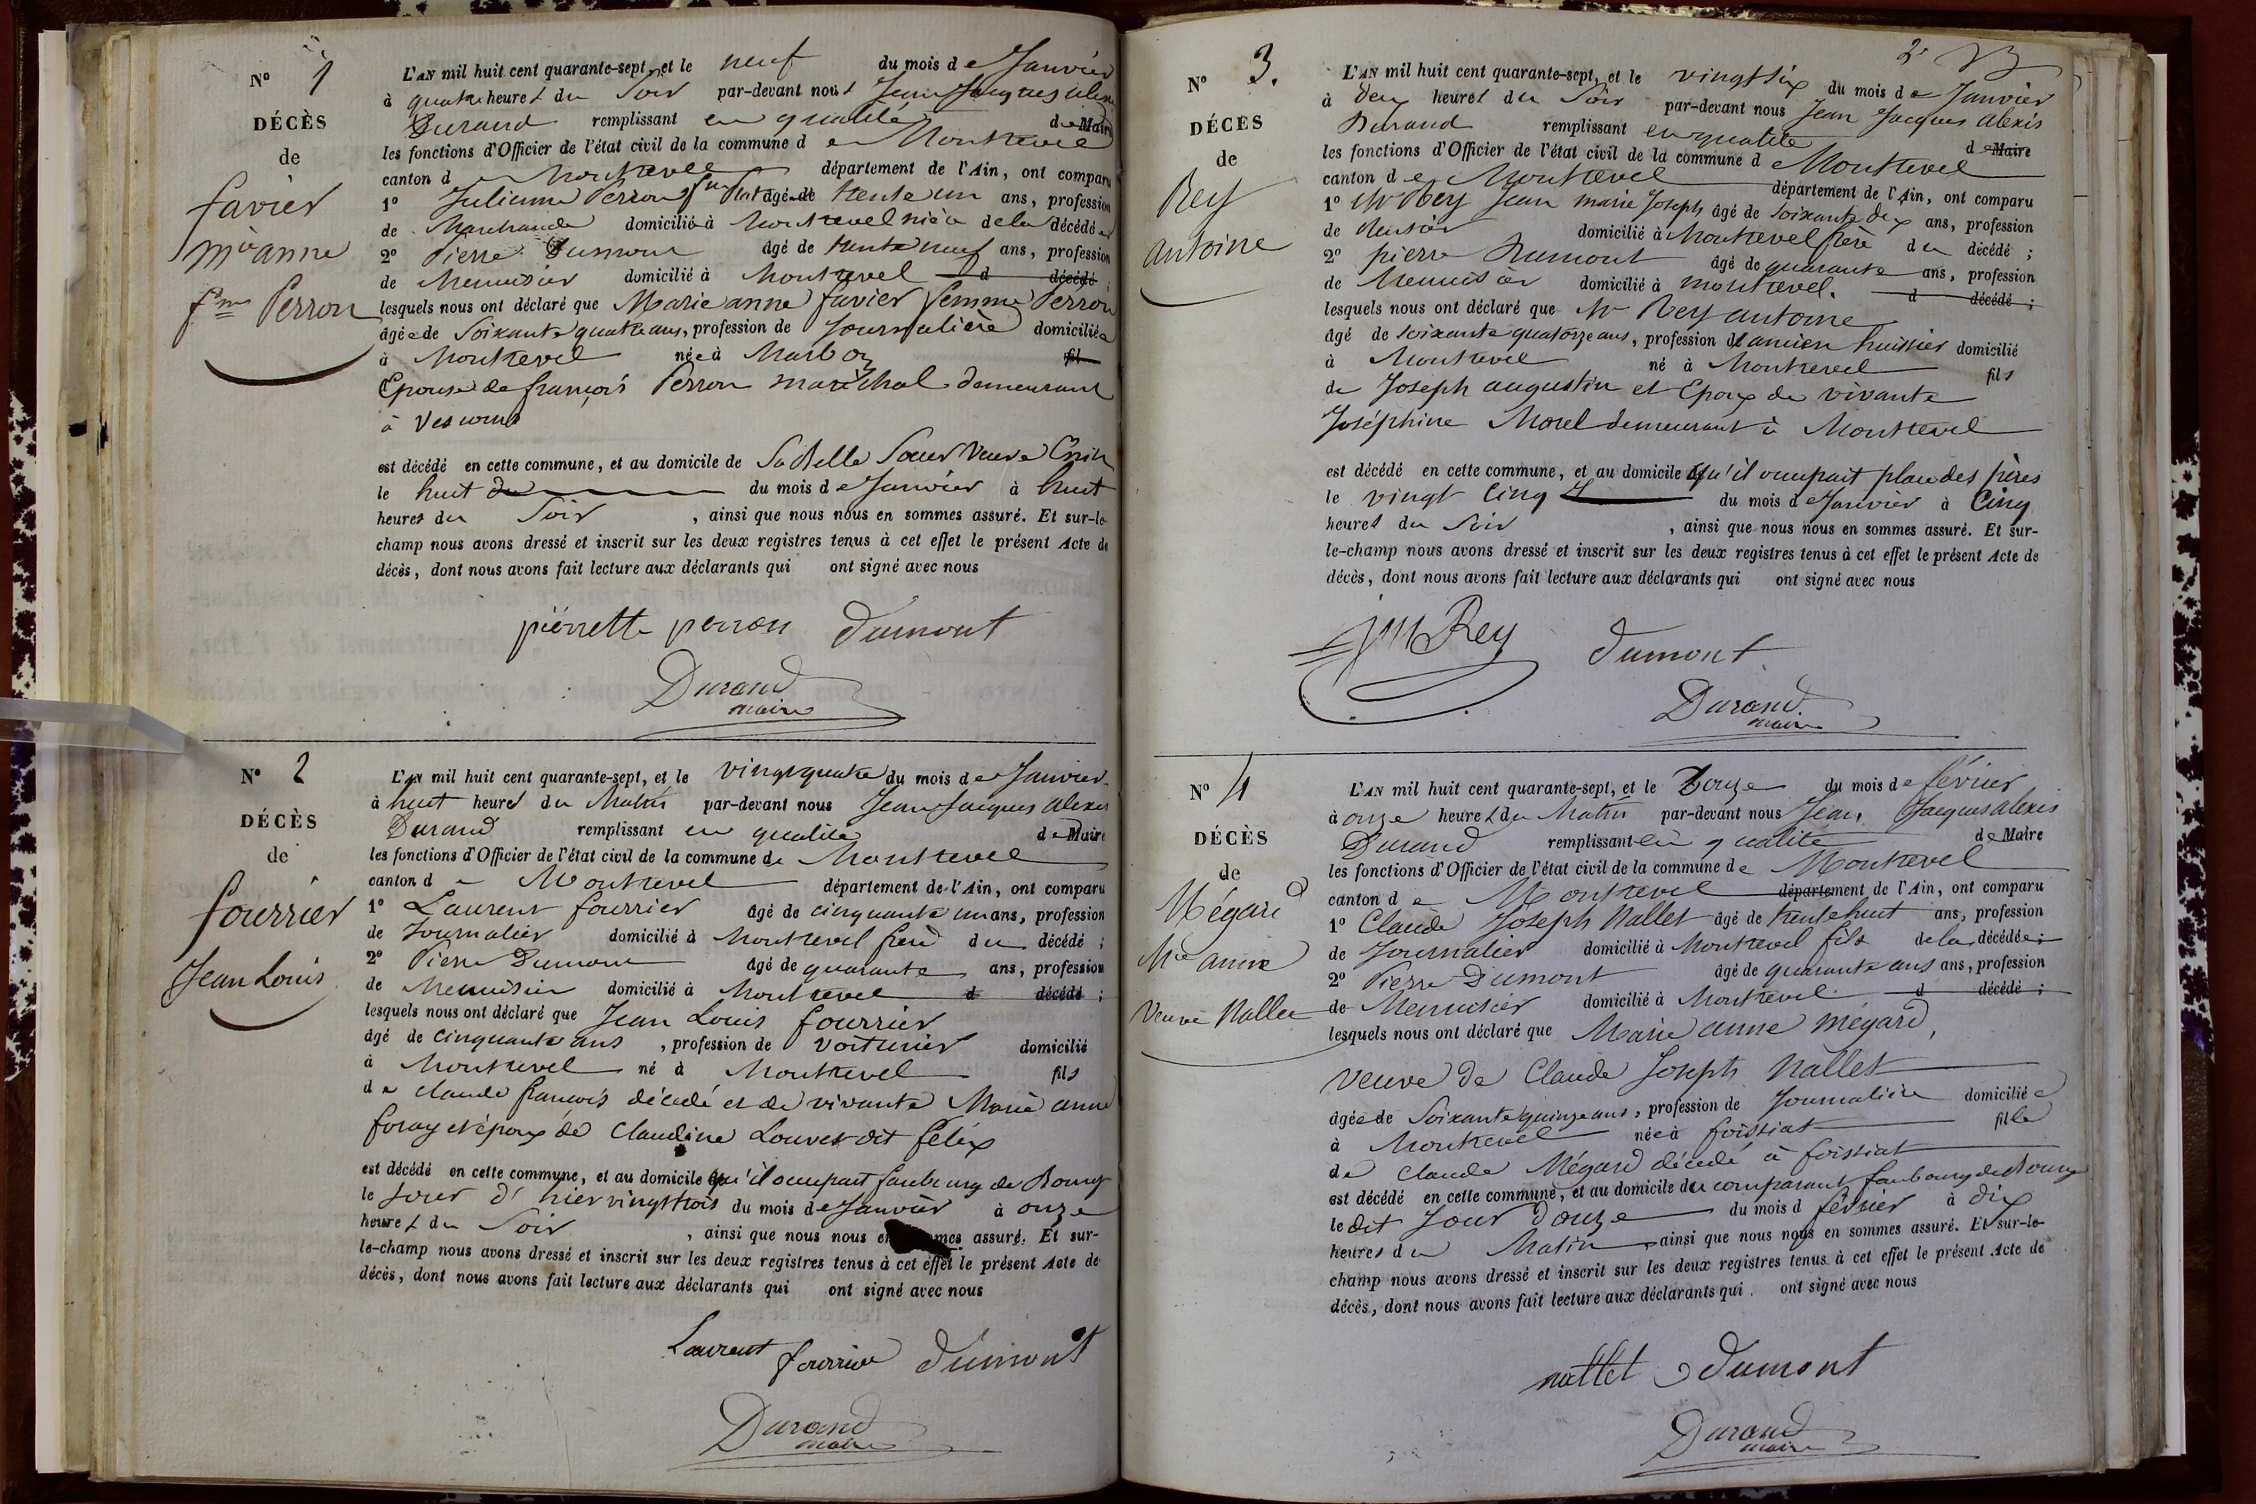 N° 1
DÉCÈS
de
favier
Mie anne
fme Perron
L'AN mil huit cent quarante-sept, et le neuf du mois de Janvier
à quatre heures du Soir par-devant nous Jean Jacques alexis
Durand remplissant en qualité de Maire
les fonctions d'Officier de l'état civil de la commune de Montrevel
canton de Montrevel département de l'Ain, ont comparu
1° Julienne Perron fme âgé de trente un ans, profession
de Marchande domiciliée à Montrevel nièce de la décédée
2° Pierre Dumont âgé de trente neuf ans, profession
de Menuisier domicilié à Montrevel d décédé ;
lesquels nous ont déclaré que Marie anne favier femme Perron
âgée de Soixante quatre ans, profession de Journalière domiciliée
à Montrevel née à Marboz fil
Epouse de françois Perron maréchal demeurant
à Vescours
est décédé en cette commune, et au domicile de Sa Belle Soeur Veuve
le huit du mois de Janvier à huit
heures du Soir, ainsi que nous nous en sommes assuré. Et sur-le-
champ nous avons dressé et inscrit sur les deux registres tenus à cet effet le présent Acte de
décès, dont nous avons fait lecture aux déclarants qui ont signé avec nous
pierrette perron dumont
Durand
maire
N° 2
DÉCÈS
de
fourrier
Jean Louis
L'AN mil huit cent quarante-sept, et le vingt quatre du mois de Janvier
à huit heures du Matin par-devant nous Jean Jacques alexis
Durand remplissant en qualité de Maire
les fonctions d'Officier de l'état civil de la commune de Montrevel
canton de Montrevel département de l'Ain, ont comparu
1° Laurent fourrier âgé de cinquante un ans, profession
de Journalier domicilié à Montrevel frere du décédé ;
2° Pierre Dumont âgé de quarante ans, profession
de Menuisier domicilié à Montrevel d décédé ;
lesquels nous ont déclaré que Jean Louis fourrier
âgé de cinquante ans, profession de Voiturier domicilié
à Montrevel né à Montrevel fils
de claude françois décédé et de vivante Marie anne
foray et époux de Claudine Louvet dit félix
est décédé en cette commune, et au domicile qu'il occupait faubourg de Bourg
le jour d'hier vingt trois du mois de Janvier à onze
heures du Soir, ainsi que nous nous en sommes assuré. Et sur-
le-champ nous avons dressé et inscrit sur les deux registres tenus à cet effet le présent Acte de
décès, dont nous avons fait lecture aux déclarants qui ont signé avec nous
Laurent fourrier dumont
Durand
maire
2e
N° 3.
DÉCÈS
de
Rey
antoine
L'AN mil huit cent quarante-sept, et le vingt six du mois de Janvier
à deux heures du Soir par-devant nous Jean Jacques alexis
Durand remplissant en qualité de Maire
les fonctions d'Officier de l'état civil de la commune de Montrevel
canton de Montrevel département de l'Ain, ont comparu
1° Mr Rey Jean marie Joseph âgé de Soixante dix ans, profession
de Rentier domicilié à Montrevel frère du décédé ;
2° pierre Dumont âgé de quarante ans, profession
de Menuisier domicilié à montrevel. d décédé ;
lesquels nous ont déclaré que Mr Rey antoine
âgé de soixante quatorze ans, profession d'ancien huissier domicilié
à Montrevel né à Montrevel fils
de Joseph augustin et Epoux de vivante
Joséphine Morel demeurant à Montrevel
est décédé en cette commune, et au domicile qu'il occupait place des pères
le vingt Cinq du mois de Janvier à Cinq
heures du Soir, ainsi que nous nous en sommes assuré. Et sur-
le-champ nous avons dressé et inscrit sur les deux registres tenus à cet effet le présent Acte de
décès, dont nous avons fait lecture aux déclarants qui ont signé avec nous
jm Rey dumont
Durand
maire
N° 4
DÉCÈS
de
Mégard
Mie anne
Veuve Nallet
L'AN mil huit cent quarante-sept, et le Douze du mois de février
à onze heures du Matin par-devant nous Jean Jacques alexis
Durand remplissant en qualité de Maire
les fonctions d'Officier de l'état civil de la commune de Montrevel
canton de Montrevel département de l'Ain, ont comparu
1° Claude Joseph Nallet âgé de trente huit ans, profession
de Journalier domicilié à Montrevel fils de la décédée ;
2° Pierre Dumont âgé de quarante ans ans, profession
de Menuisier domicilié à Montrevel d décédé ;
lesquels nous ont déclaré que Marie anne mégard,
veuve de Claude Joseph Nallet
âgée de Soixante quinze ans, profession de Journalière domiciliée
à Montrevel née à foissiat fille
de Claude Mégard décédé à foissiat
est décédé en cette commune, et au domicile du comparant faubourg de Bourg
le dit Jour Douze du mois d février à dix
heures du Matin, ainsi que nous nous en sommes assuré. Et sur-le-
champ nous avons dressé et inscrit sur les deux registres tenus à cet effet le présent Acte de
décès, dont nous avons fait lecture aux déclarants qui ont signé avec nous
nallet dumont
Durand
maire